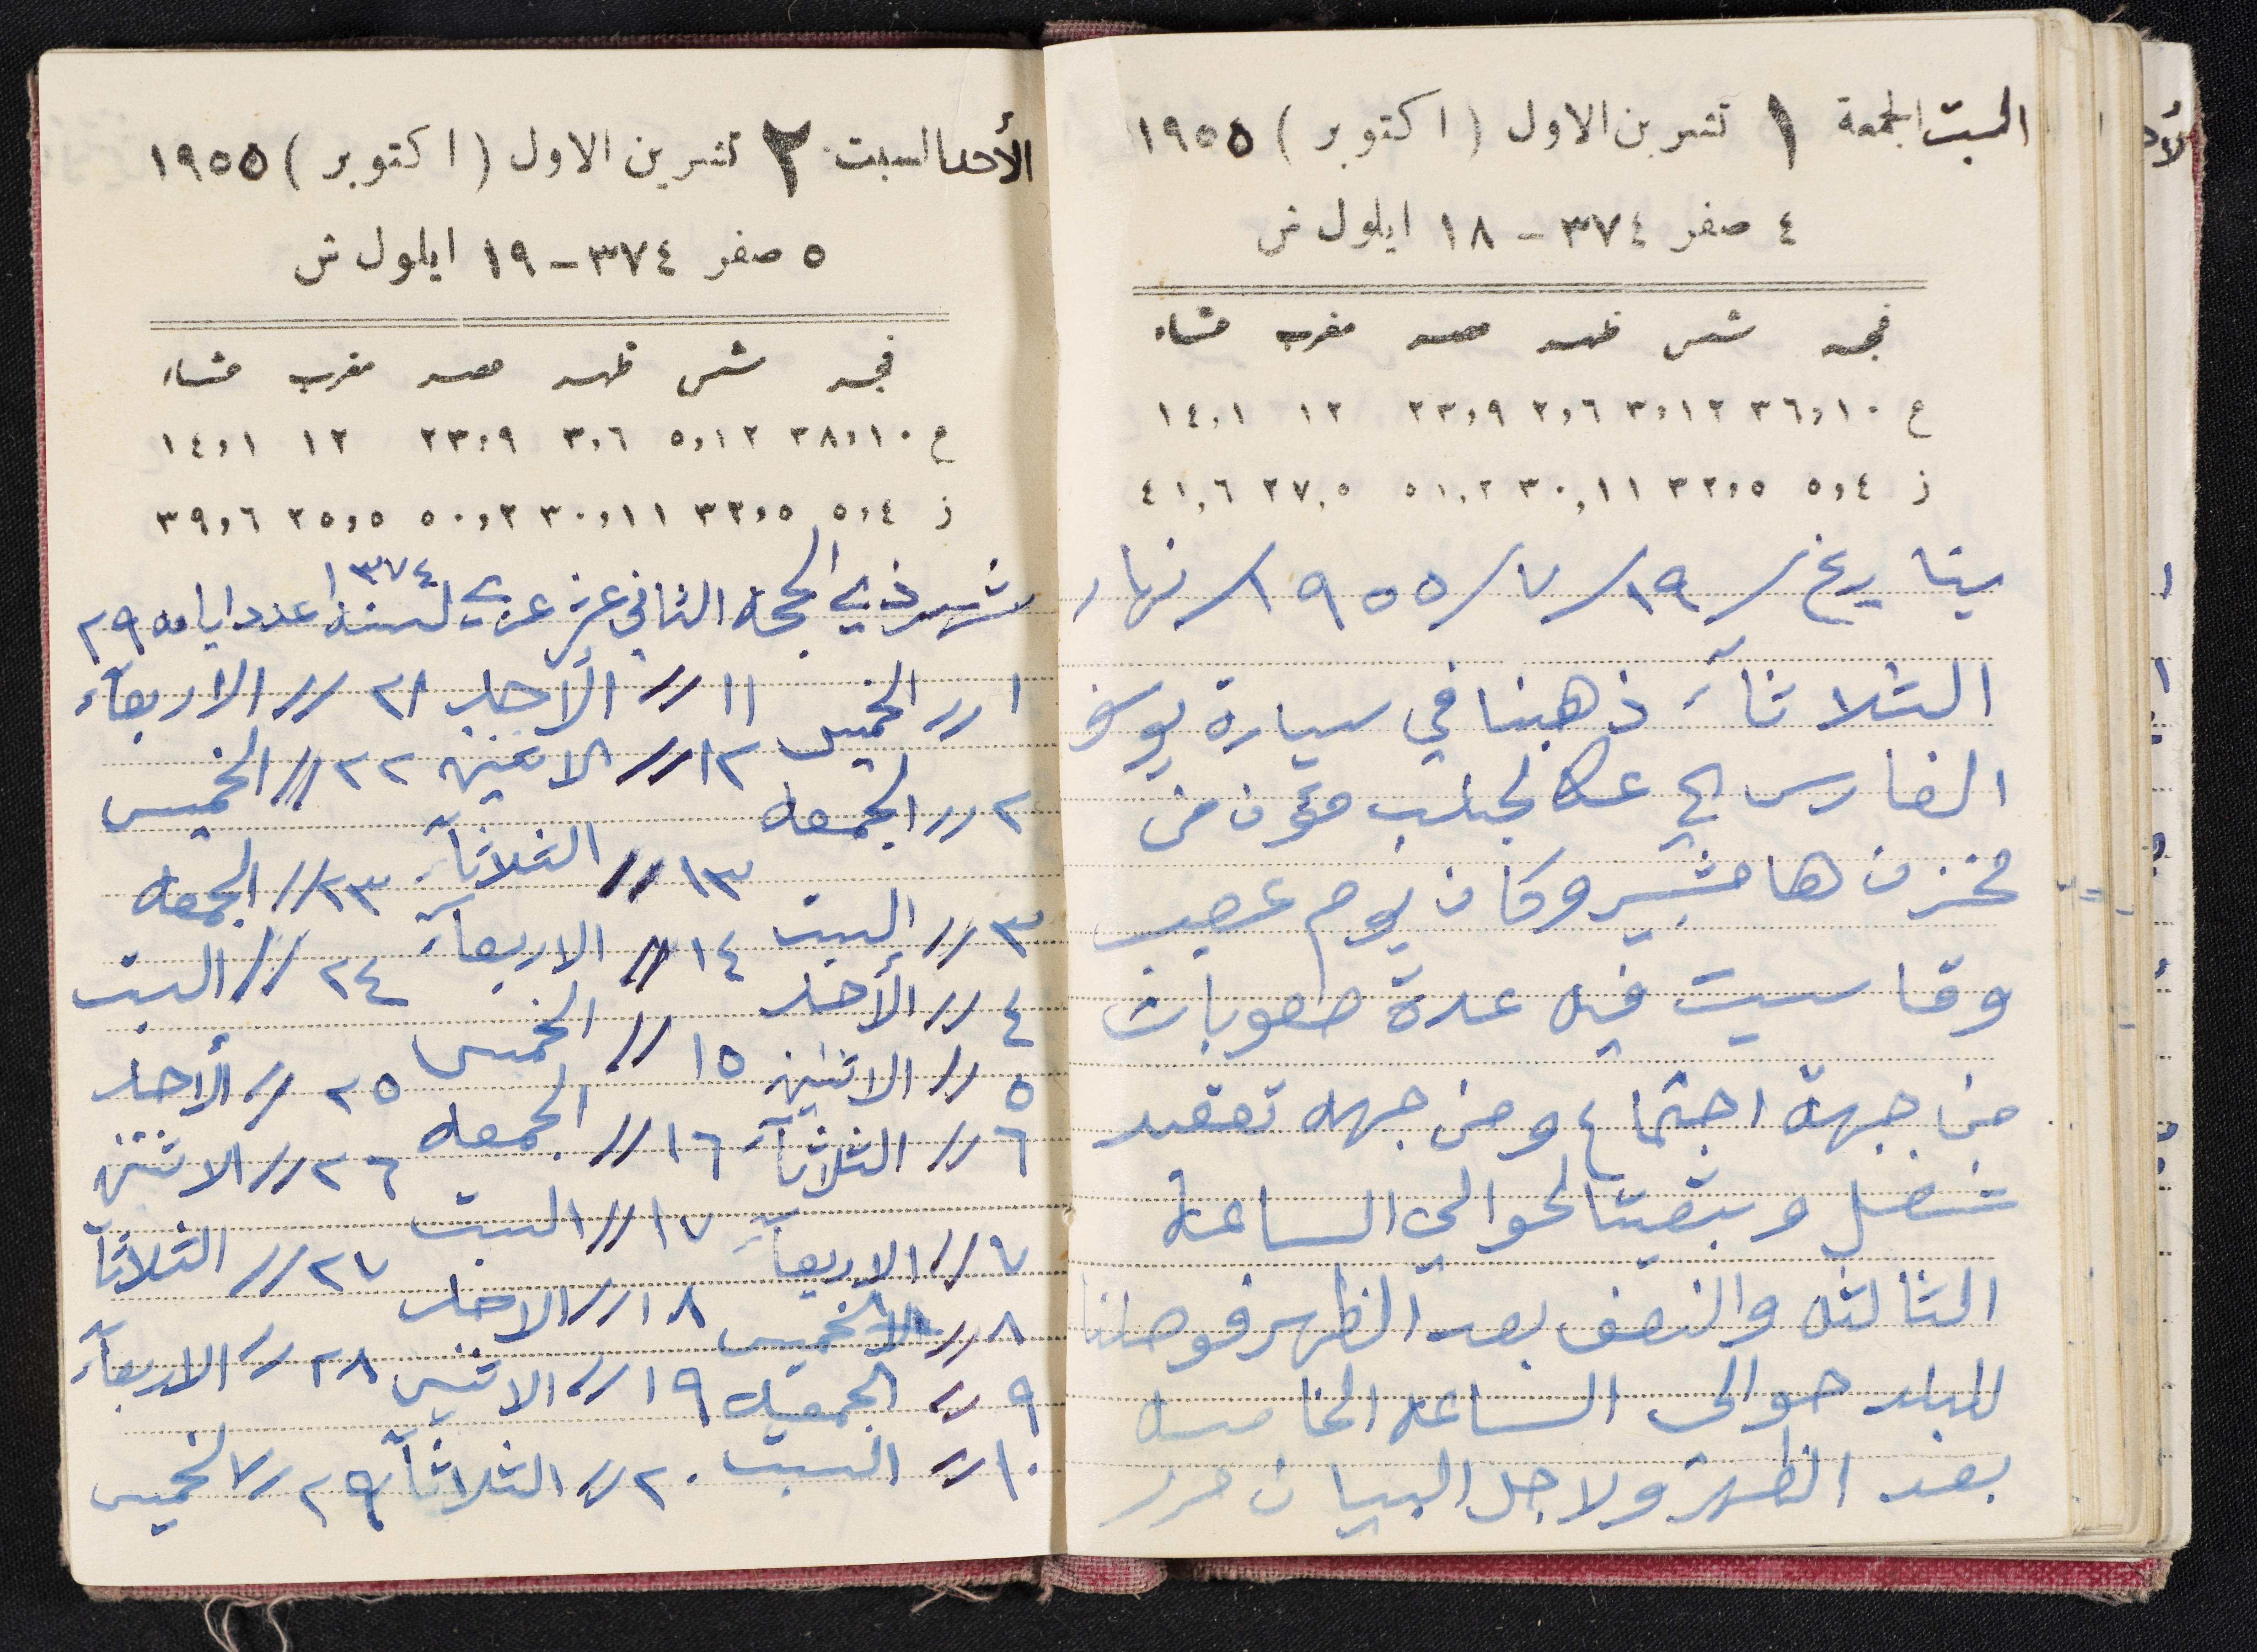 السبت الجمعة ١ تشرين الاول (اكتوبر) ١٩٥٥
٤ صفر ٣٧٤ - ١٨ ايلول ش
فجر شمس ظهر عصر مغرب عشاء
ع ٣٦,١٠ ٣,١٢ ٢,٦ ٢٣,٩ ١٢ ١٤,١
ز ٥,٤ ٣٢,٥ ٣٠,١١ ٥١,٢ ٢٧,٥ ٤١,٦
بتاريخ /١٩/٧/١٩٥٥/ نهار
الثلاثآء ذهبنا في سيارة يوسف
الفارس الى عكا لجلب مؤن من
مخزن هامشبير وكان يوم عصيب
وقاسيت فيه عدة صعوبات
من جهة اجتماع ومن جهه تعقيد
شغل وبقيتا لحوالي الساعة
الثالثه والنصف بعد الظهر فوصلنا
للبلد حوالي الساعه الخامسه
بعد الظهر ولاجل البيان حرر
الأحد السبت ٢ تشرين الاول (اكتوبر) ١٩٥٥
٥ صفر ٣٧٤ - ١٩ ايلول ش
فجر شمس ظهر عصر مغرب عشاء
ع ٣٨,١٠ ٥,١٢ ٣,٦ ٢٣,٩ ١٢ ١٤,١
ز ٥,٤ ٣٣,٥ ٣٠,١١ ٥٠,٢ ٢٥,٥ ٣٩,٦
شهر ذي الحجه الثاني عشر عربي لسنة ١٣٧٤ عدد ايامه ٢٩
١ // الخميس ١١ // الأحد ٢١ // الاربعآء
٢ // الجمعه ١٢ // الاثنين ٢٢ // الخميس
٣ // السبت ١٣ // الثلاثآء ٢٣ // الجمعه
٤ // الأحد ١٤ // الاربعآء ٢٤ // السبت
٥ // الاثنين ١٥ // الخميس ٢٥ // الأحد
٦ // الثلاثآء ١٦ // الجمعه ٢٦ // الاثنين
٧ // الاربعآء ١٧ // السبت ٢٧ // الثلاثآ
٨ // الخميس ١٨ // الاحد ٢٨ // الاربعآء
٩ // الجمعه ١٩ // الاثنين ٢٩ // الخميس
١٠ // السبت ٢٠ // الثلاثآء